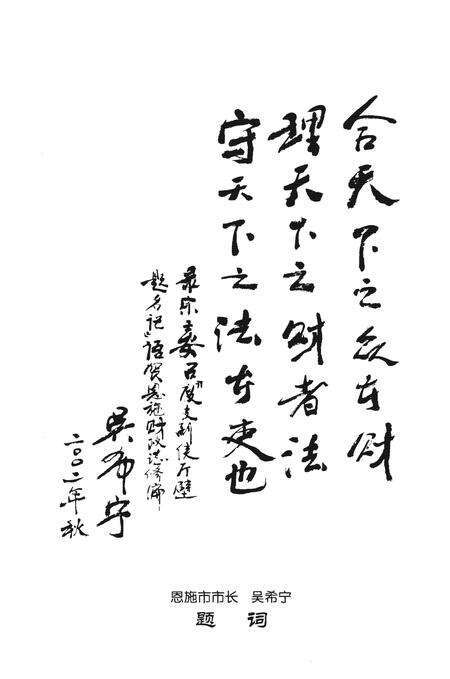 合天下之众者财
理天下之财者法
守天下之法者吏也
录宋王安石“度支副使厅壁
题名记”语贺恩施财政志修编
吴希宁
二〇〇二年秋
恩施市市长 吴希宁
题 词